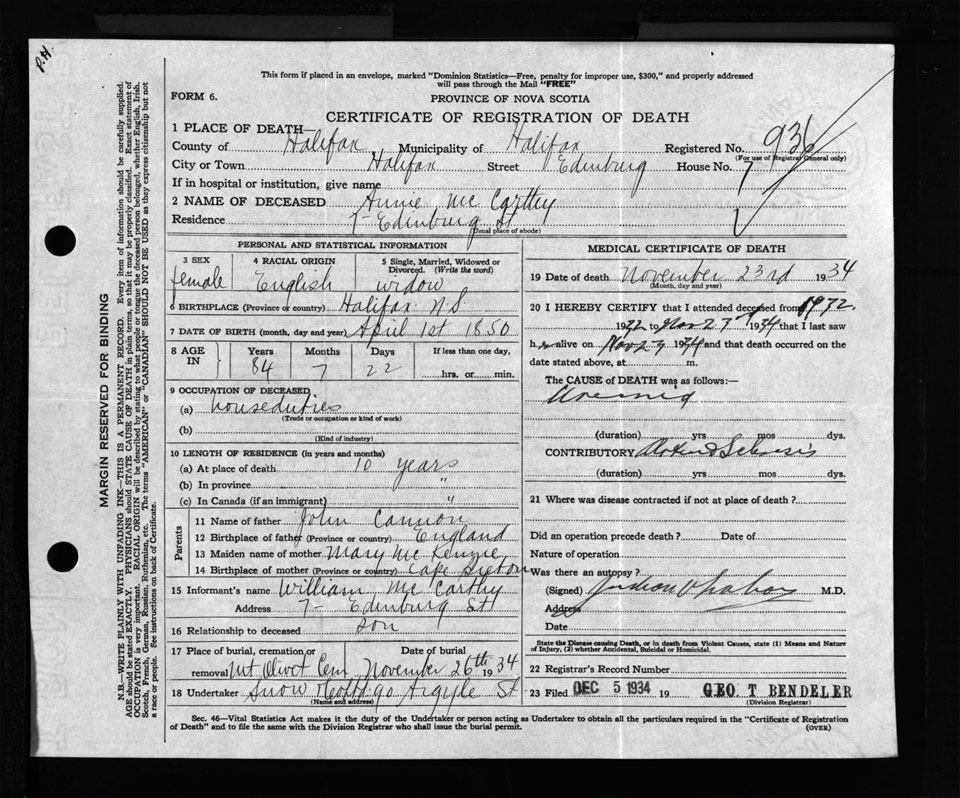 P.H
This form if placed in an envelope, marked "Dominion Statistics—Free, penalty for improper use, $300," and properly addressed
will pass through the Mail "FREE"
FORM 6.
PROVINCE OF NOVA SCOTIA
CERTIFICATE OF REGISTRATION OF DEATH
1 PLACE OF DEATH—
County of Halifax Municipality of Halifax Registered No. 936
(For use of Registrar General only)
City or Town Halifax Street Edinburg House No. 7
If in hospital or institution, give name
2 NAME OF DECEASED Annie Mc Carthy
Residence 7- Edinburg St
(Usual place of abode)
PERSONAL AND STATISTICAL INFORMATION
3 SEX 4 RACIAL ORIGIN 5 Single, Married, Widowed or
Divorced. (Write the word)
female English widow
6 BIRTHPLACE (Province or country) Halifax N.S.
7 DATE OF BIRTH (month, day and year) April 1st 1850
8 AGE IN Years Months Days If less than one day,
84 7 22 hrs. or min.
9 OCCUPATION OF DECEASED
(a) houseduties
(Trade or occupation or kind of work)
(b)
(Kind of industry)
10 LENGTH OF RESIDENCE (in years and months)
(a) At place of death 10 years
(b) In province "
(c) In Canada (if an immigrant) "
Parents
11 Name of father John Cannon
12 Birthplace of father (Province or country) England
13 Maiden name of mother Mary Mc Kenzie
14 Birthplace of mother (Province or country) Cape Breton
15 Informant's name William Mc Carthy
Address 7- Edinburg St
16 Relationship to deceased son
17 Place of burial, cremation or Date of burial
removal Mt Olivet Cem November 26th 1934
18 Undertaker Snow 90 Argyle St
(Name and address)
MEDICAL CERTIFICATE OF DEATH
19 Date of death November 23rd 1934
(Month, day and year)
20 I HEREBY CERTIFY that I attended deceased from
1932 to Nov 23 1934 that I last saw
her alive on Nov 23 1934 and that death occurred on the
date stated above, at m.
The CAUSE of DEATH was as follows:—
Uremia
(duration) yrs mos dys.
CONTRIBUTORY
(duration) yrs mos dys.
21 Where was disease contracted if not at place of death?
Did an operation precede death? Date of
Nature of operation
Was there an autopsy?
(Signed) M.D.
Address
Date
State the Disease causing Death, or in death from Violent Causes, state (1) Means and Nature
of Injury, (2) whether Accidental, Suicidal or Homicidal.
22 Registrar's Record Number
23 Filed DEC 5 1934 19 GEO T BENDELER
(Division Registrar)
Sec. 46—Vital Statistics Act makes it the duty of the Undertaker or person acting as Undertaker to obtain all the particulars required in the "Certificate of Registration
of Death" and to file the same with the Division Registrar who shall issue the burial permit.
(OVER)
MARGIN RESERVED FOR BINDING
N.B.—WRITE PLAINLY WITH UNFADING INK—THIS IS A PERMANENT RECORD. Every item of information should be carefully supplied.
AGE should be stated EXACTLY. PHYSICIANS should STATE CAUSE OF DEATH in plain terms, so that it may be properly classified. Exact statement of
OCCUPATION is very important. RACIAL ORIGIN will be described by stating to what people or tongue the deceased person belonged, whether English, Irish,
Scotch, French, German, Russian, Ruthenian, etc. The terms "AMERICAN" or "CANADIAN" SHOULD NOT BE USED as they express citizenship but not
a race or people. See instructions on back of Certificate.